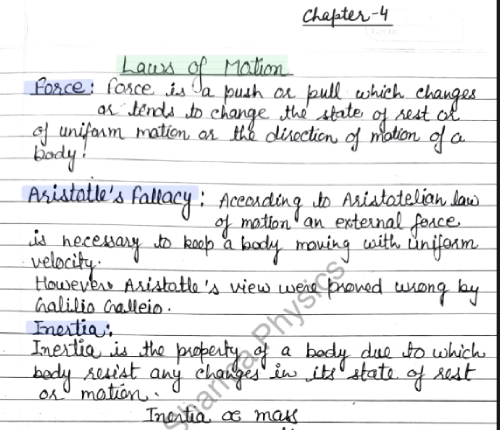 Chapter-4
Laws of Motion
Force: Force is a push or pull which changes
or tends to change the state of rest or
of uniform motion or the direction of motion of a
body.
Aristotle's fallacy: According to Aristotelian law
of motion an external force
is necessary to keep a body moving with uniform
velocity.
However Aristotle's view were proved wrong by
Galilio Galleio.
Inertia:
Inertia is the property of a body due to which
body resist any changes in its state of rest
or motion.
Inertia ∝ mass
Sharma Physics